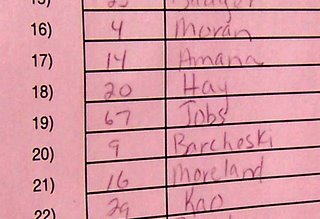 16) 4 Moran
17) 14 Amana
18) 20 Hay
19) 67 Jobs
20) 9 Barcheski
21) 16 Moreland
22) 29 Kan